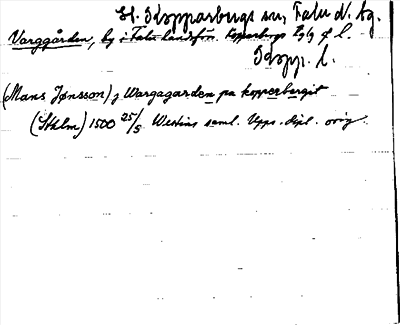 St. Kopparbergs sn, Falu d. tg.
Varggården, by i Falu landsförs. Kopparbergs l.
Kopp. l.
(Mans Jønsson) j Wargagarden pa kopperbergit
(Sthlm) 1500 25/5 Westins saml. Upps. dipl. orig.